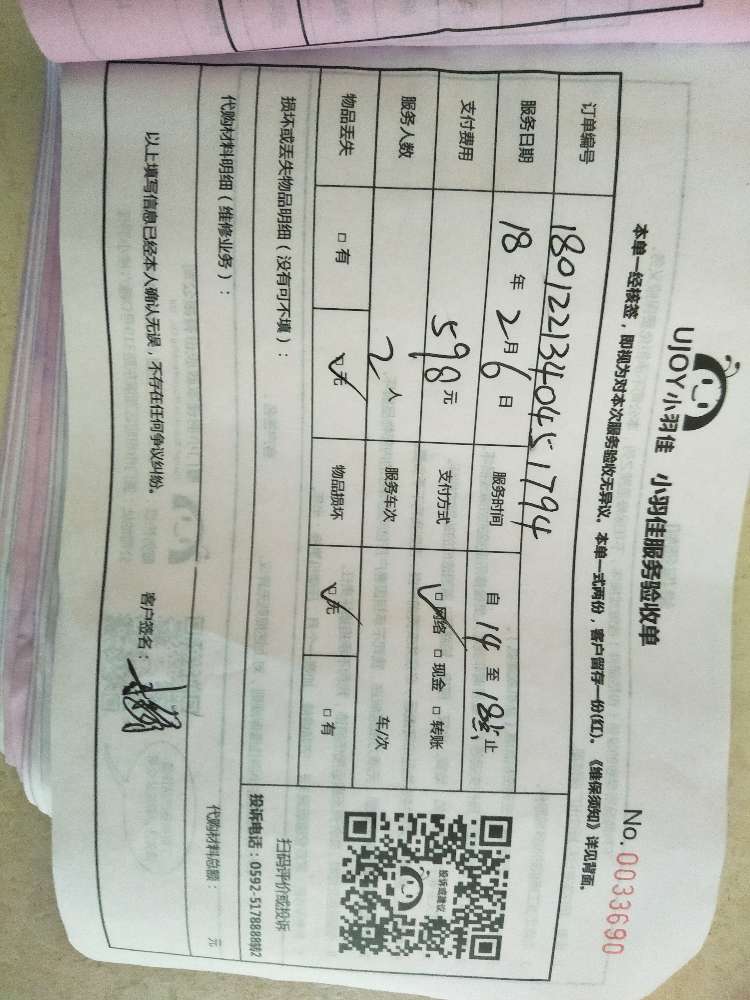 UJOY小羽佳 小羽佳服务验收单
No.0033690
本单一经核签，即视为对本次服务验收无异议。本单一式两份，客户留存一份(红)。《维保须知》详见背面。
订单编号 180122134045 1794
服务日期 18年2月6日 服务时间 自14至18点止
支付费用 598元 支付方式 □网络 □现金 □转账
服务人数 2人 服务车次 车/次
物品丢失 □有 □无 物品损坏 □无 □有
投诉或建议
扫码评价或投诉
投诉电话：0592-5178888转2
损坏或丢失物品明细（没有可不填）：
代购材料明细（维修业务）：
代购材料总额： 元
以上填写信息已经本人确认无误，不存在任何争议纠纷。
客户签名：